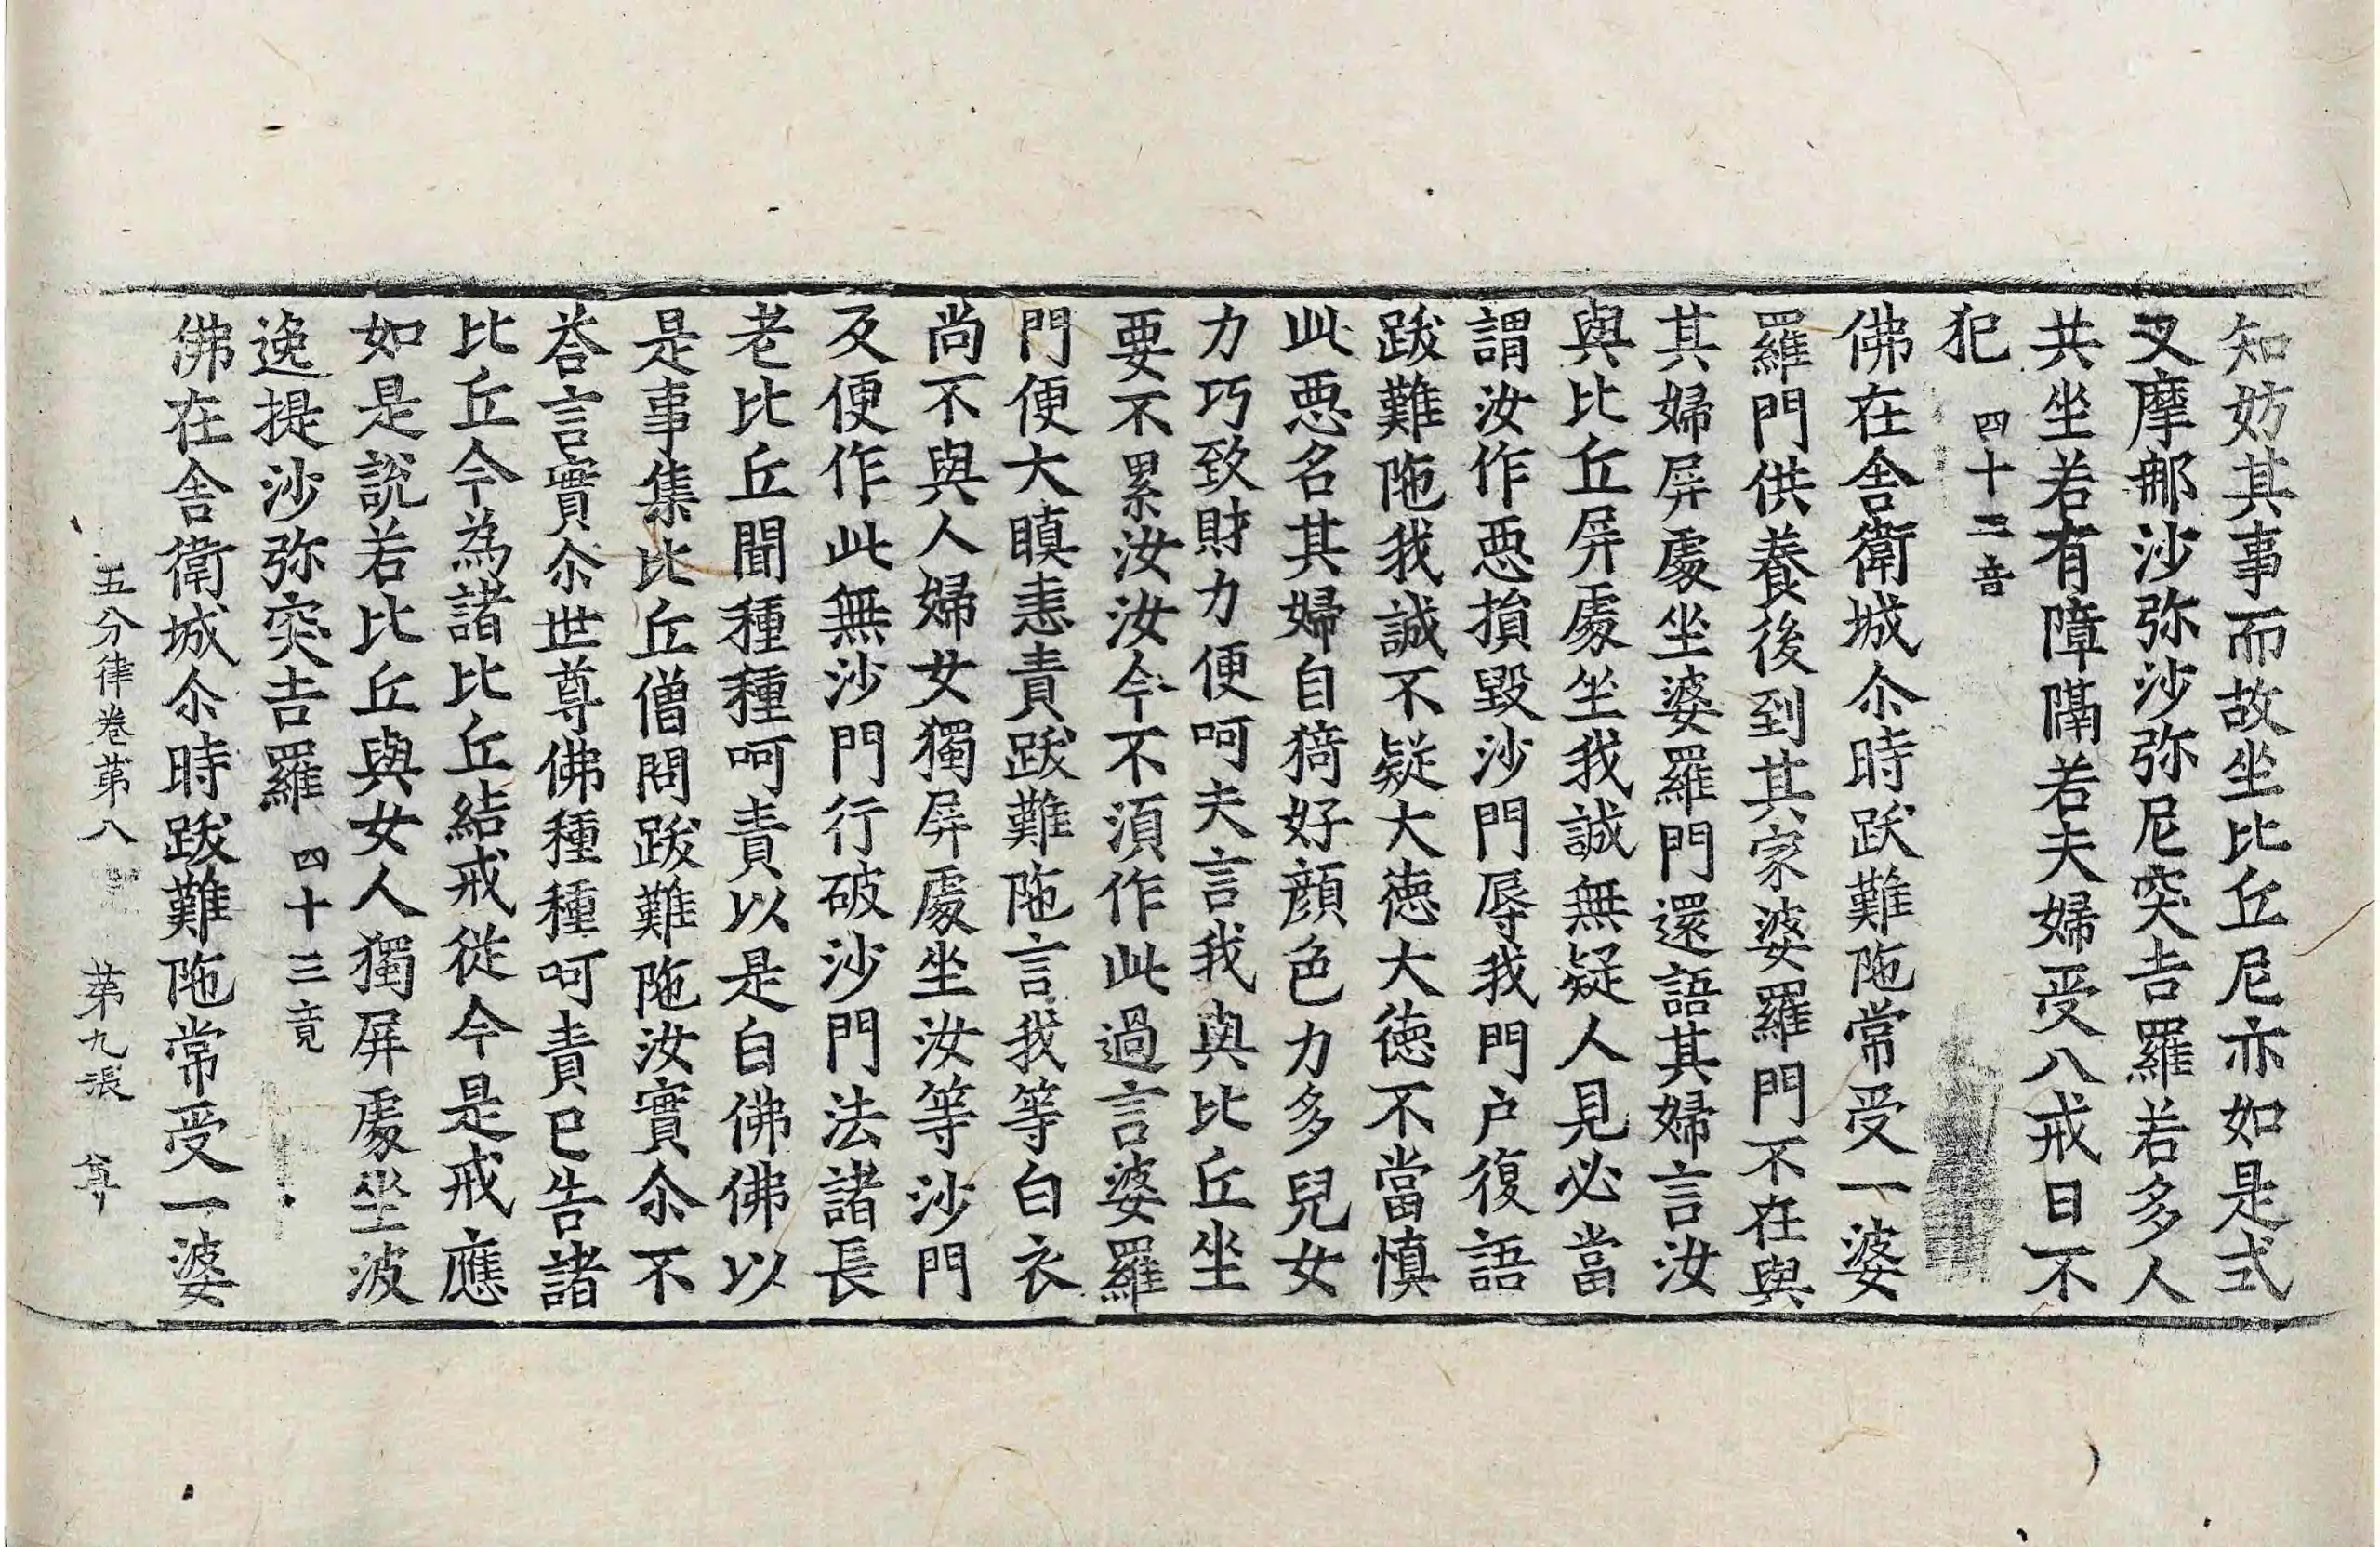 知妨其事而故坐比丘尼亦如是式
叉摩那沙弥沙弥尼突吉羅若多人
共坐若有障隔若夫婦受八戒日不
犯 四十二竟
佛在舎衛城尒時跋難陁常受一婆
羅門供養後到其家婆羅門不在與
其婦屏處坐婆羅門還語其婦言汝
與比丘屏處坐我誠無疑人見必當
謂汝作惡損毀沙門辱我門户復語
跋難陁我誠不疑大徳大徳不當慎
此惡名其婦自猗好顔色力多兒女
力巧致財力便呵夫言我與比丘坐
要不累汝汝今不湏作此過言婆羅
門便大瞋恚責跋難陁言我等白衣
尚不與人婦女獨屏處坐汝等沙門
及便作此無沙門行破沙門法諸長
老比丘聞種種呵責以是白佛佛以
是事集比丘僧問跋難陁汝實尒不
荅言實尒世尊佛種種呵責已告諸
比丘今為諸比丘結戒從今是戒應
如是說若比丘與女人獨屏處坐波
逸提沙弥突吉羅 四十三竟
佛在舎衛城尒時跋難陁常受一婆
五分律卷苐八 苐九張 尊